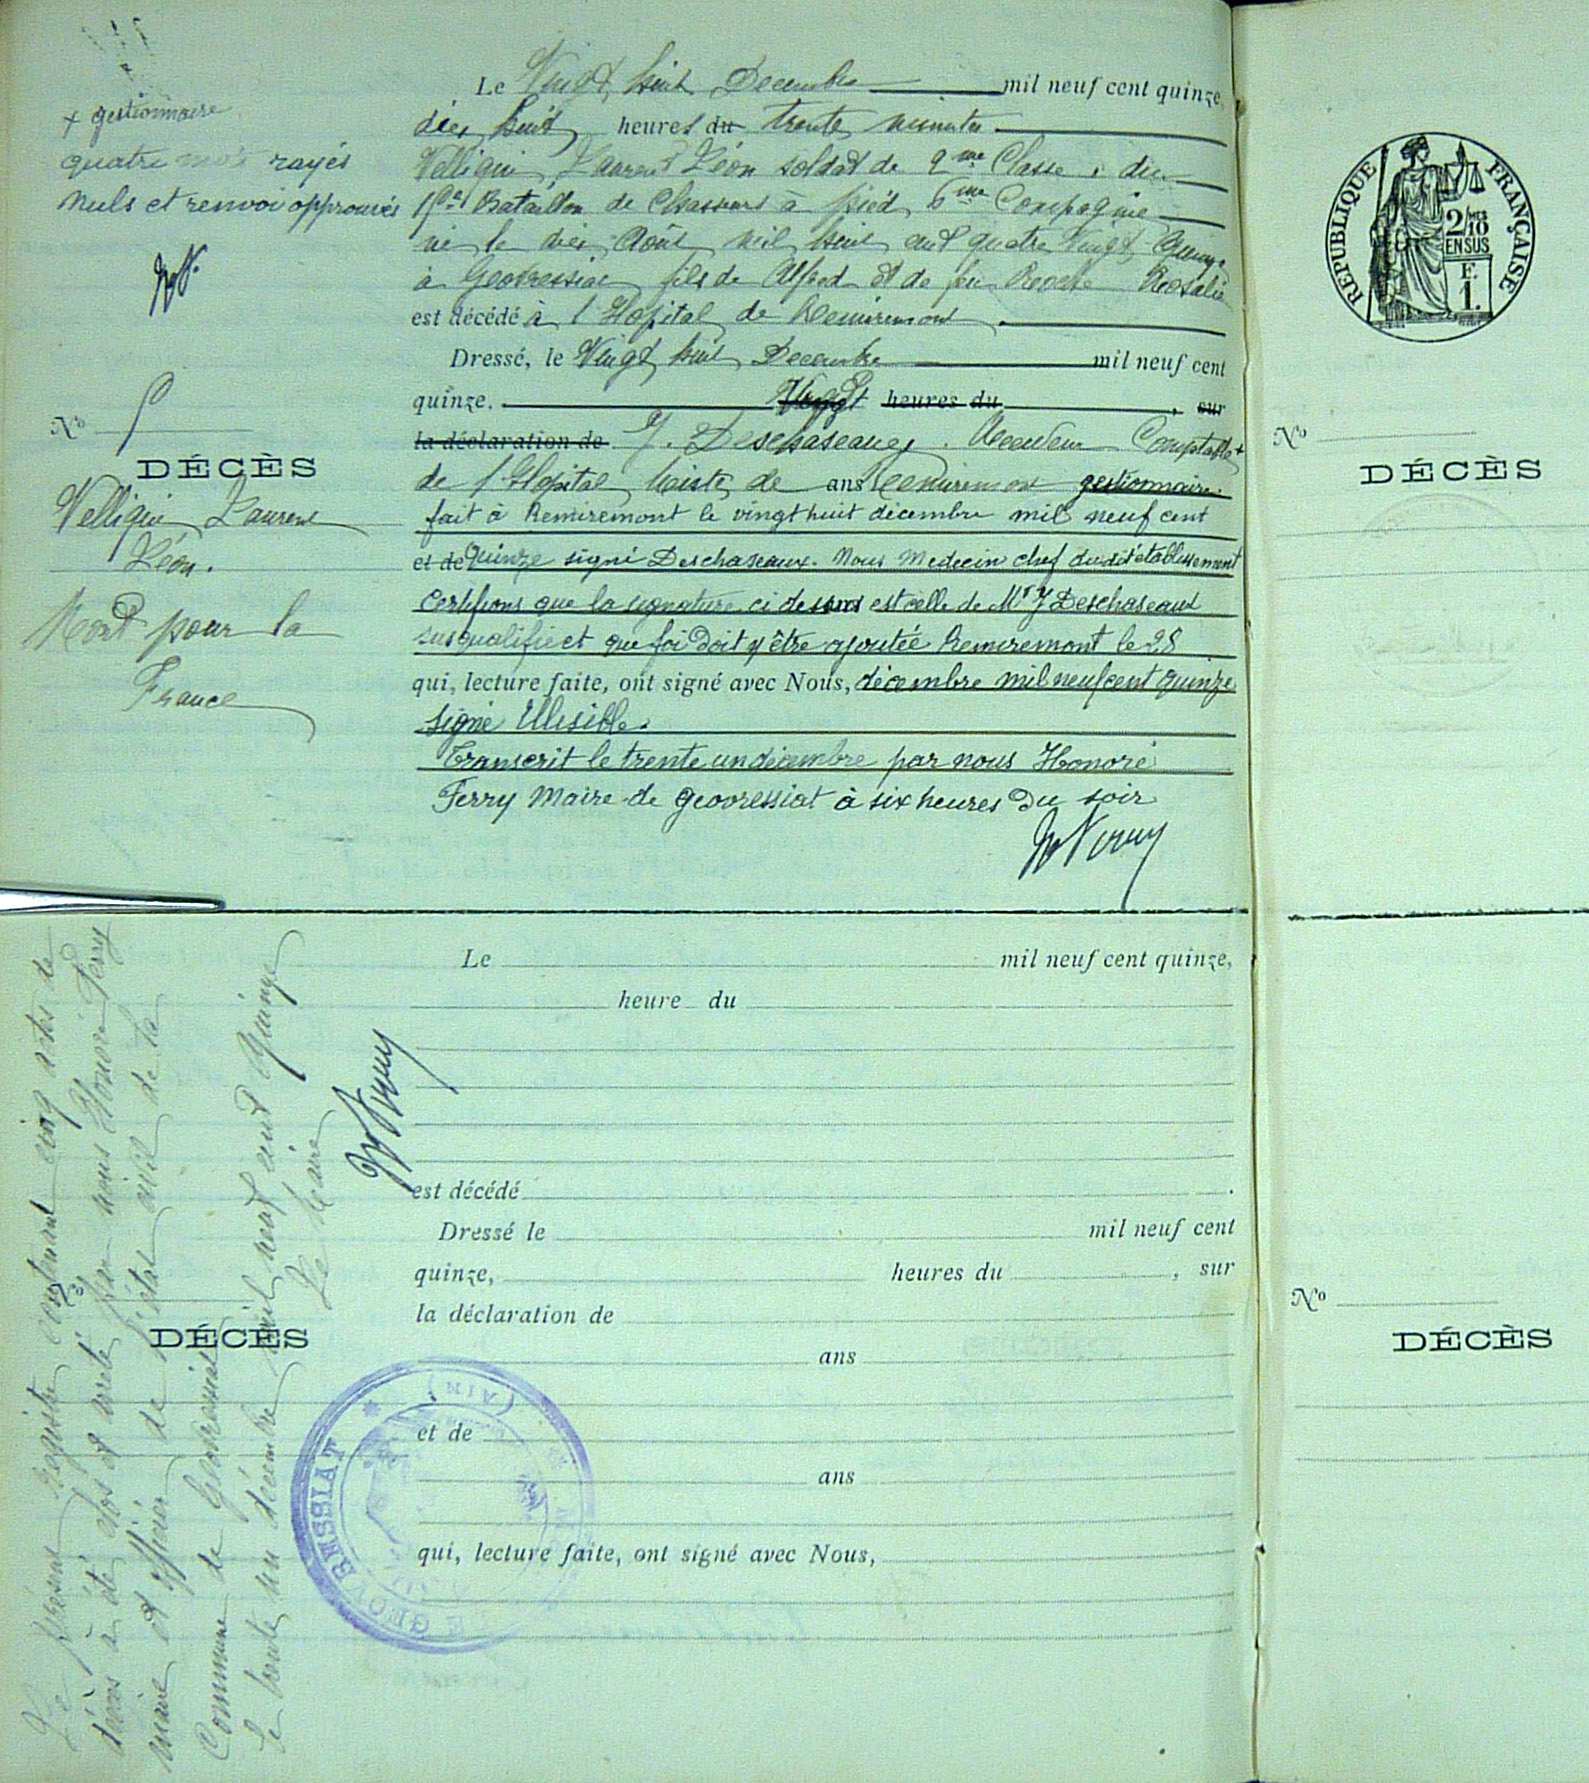 + gestionnaire
quatre mots rayés
nuls et renvoi approuvés
Le Vingt huit Decembre mil neuf cent quinze,
dix huit heures du trente minutes
Velliqui Laurent Léon soldat de 2me Classe, du
Bataillon de Chasseurs à pied, 6me Compagnie
né le dix Août mil huit cent quatre Vingt Quinze
à Geovressiat fils de Alfred et de feu Rosalie
est décédé à l'Hopital de Remiremont.
Dressé, le Vingt huit Decembre mil neuf cent
quinze. Vingt heures du , sur
la déclaration de J. Deschaseaux, Comptable +
de l'Hopital Mixte de ans Remiremont gestionnaire.
fait à Remiremont le vingt huit décembre mil neuf cent
et de quinze signé Deschaseaux. Nous Medecin chef dudit établissement
Certifions que la signature ci dessus est celle de Mr J Deschaseaux
susqualifié et que foi doit y être ajoutée Remiremont le 28
qui, lecture faite, ont signé avec Nous, décembre mil neuf cent quinze
signé Illisible.
Transcrit le trente un décembre par nous Honoré
Ferry Maire de Geovressiat à six heures du soir
No 5
DÉCÈS
Velliqui Laurent
Léon.
Mort pour la
France
RÉPUBLIQUE FRANÇAISE
2/10
EN SUS
F.
1.
No
DÉCÈS
Le présent registre contenant cinq actes de
décès a été clos et arrêté par nous Honoré Ferry
maire et officier de l'état civil de la
Commune de Geovressiat
le trente un décembre mil neuf cent Quinze
Le Maire
No
DÉCÈS
Le mil neuf cent quinze,
heure du
est décédé .
Dressé le mil neuf cent
quinze, heures du , sur
la déclaration de
ans
et de
ans
qui, lecture faite, ont signé avec Nous,
GEOVRESSIAT
(AIN)
No
DÉCÈS